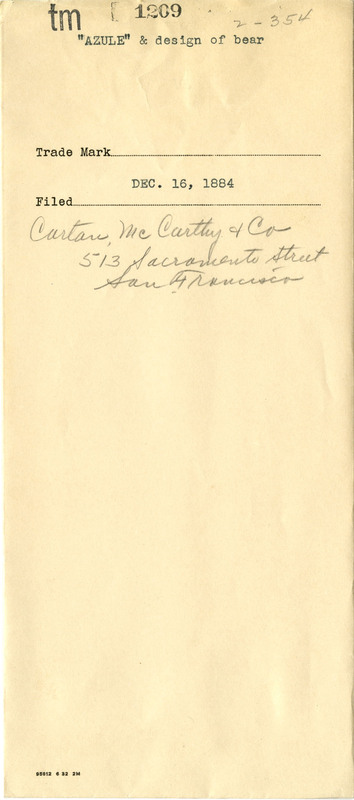 tm 1209 2-354
"AZULE" & design of bear
Trade Mark
DEC. 16, 1884
Filed
Cartan, McCarthy & Co
513 Sacramento Street
San Francisco